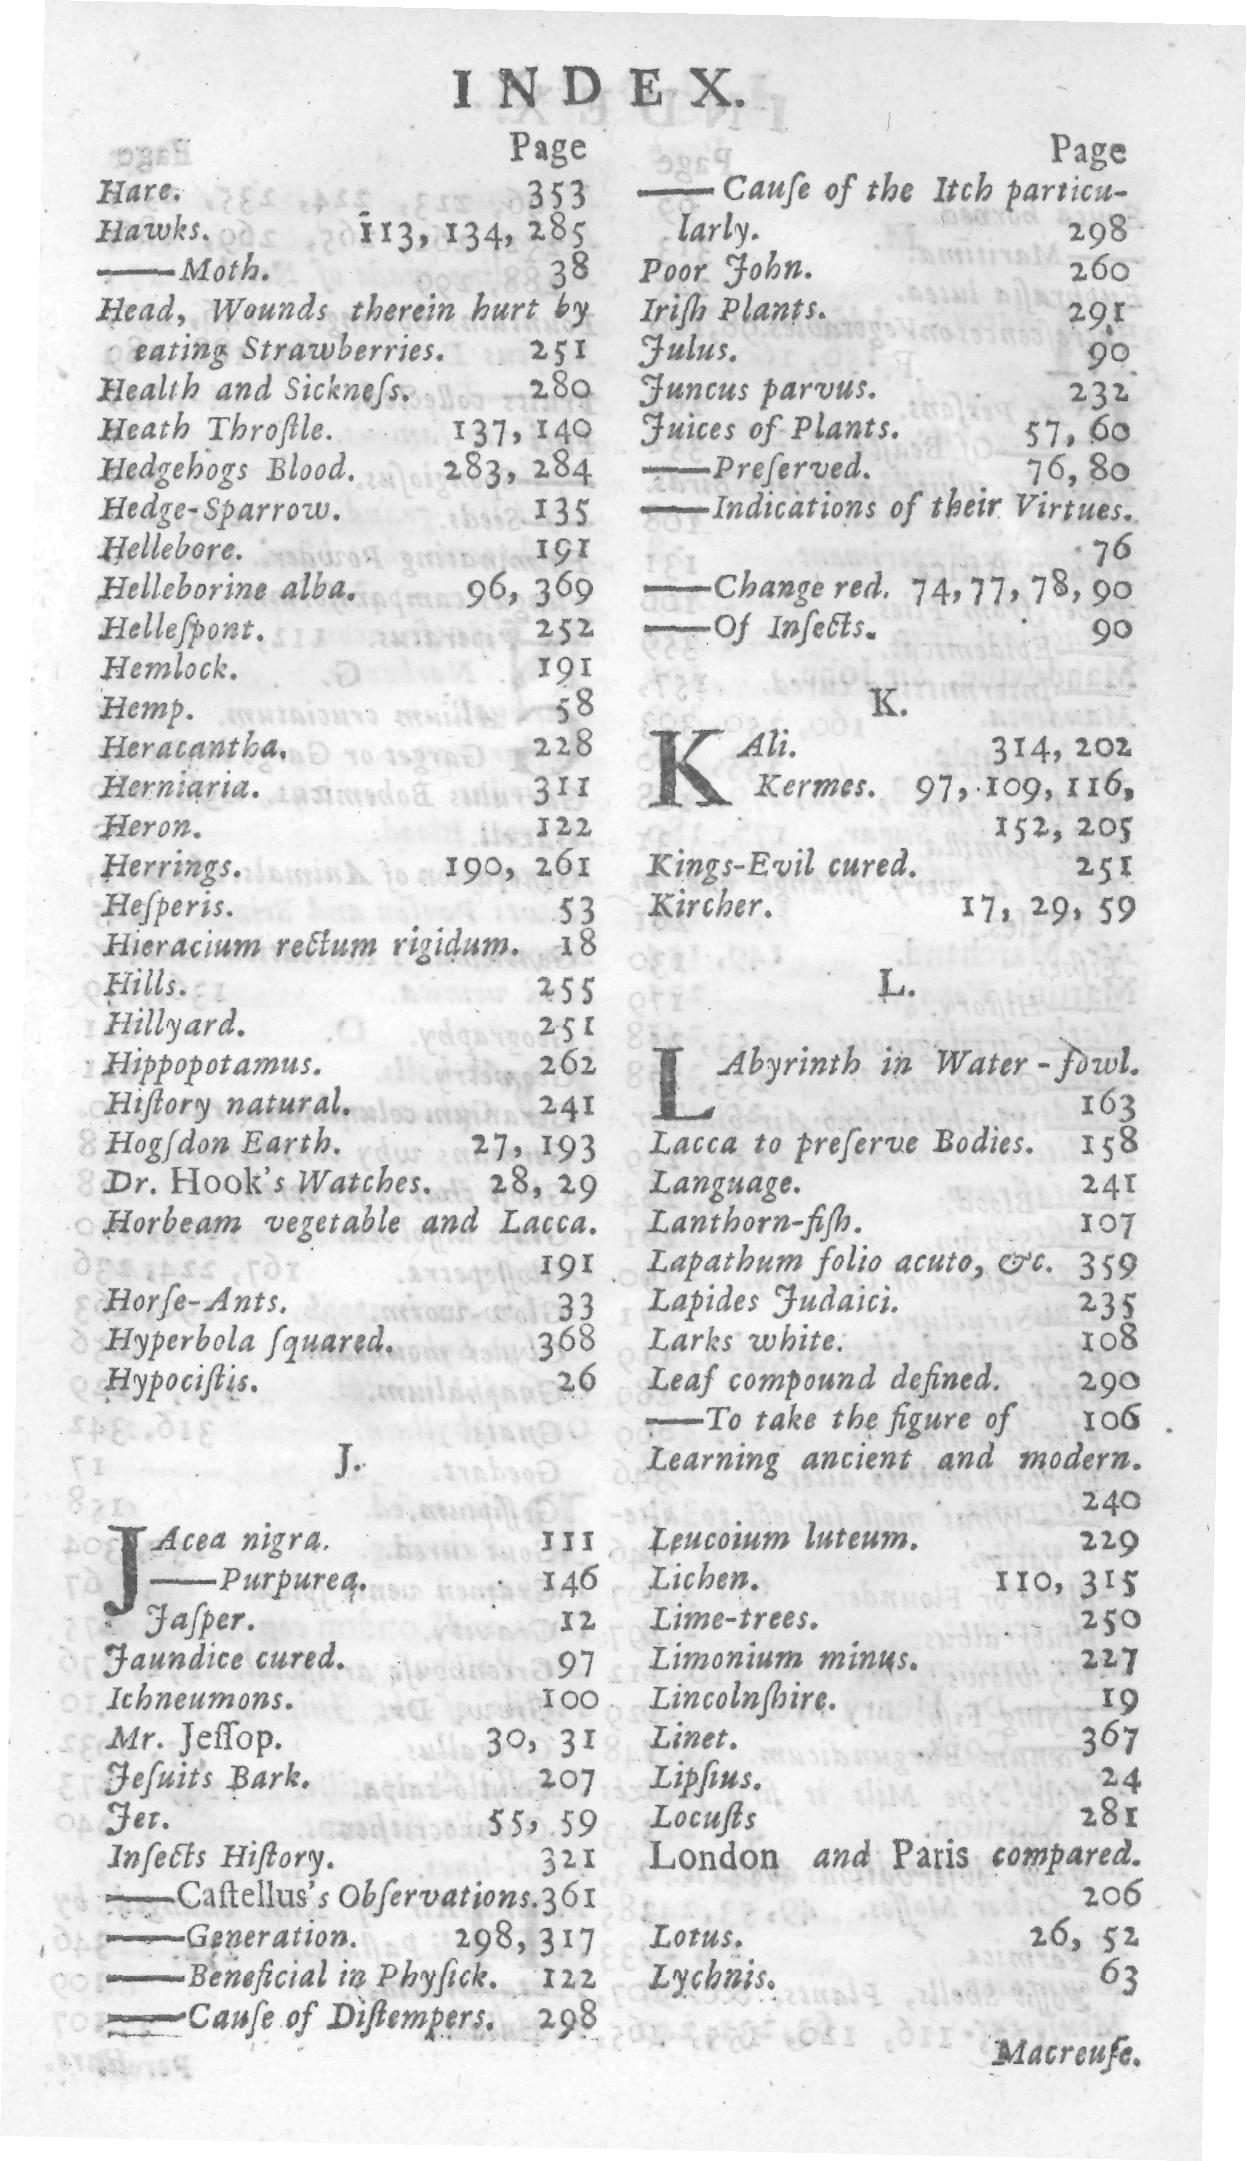 INDEX.
Page
Hare. 353
Hawks. 113, 134, 285
——Moth. 38
Head, Wounds therein hurt by
eating Strawberries. 251
Health and Sickneſs. 280
Heath Throſtle. 137, 140
Hedgehogs Blood. 283, 284
Hedge-Sparrow. 135
Hellebore. 191
Helleborine alba. 96, 369
Helleſpont. 252
Hemlock. 191
Hemp. 58
Heracantha. 228
Herniaria. 311
Heron. 122
Herrings. 190, 261
Heſperis. 53
Hieracium rectum rigidum. 18
Hills. 255
Hillyard. 251
Hippopotamus. 262
Hiſtory natural. 241
Hogſdon Earth. 27, 193
Dr. Hook's Watches. 28, 29
Horbeam vegetable and Lacca.
191
Horſe-Ants. 33
Hyperbola ſquared. 368
Hypociſtis. 26
J.
JAcea nigra. 111
——Purpurea. 146
Jaſper. 12
Jaundice cured. 97
Ichneumons. 100
Mr. Jeſſop. 30, 31
Jeſuits Bark. 207
Jet. 55, 59
Inſects Hiſtory. 321
——Caſtellus's Obſervations. 361
——Generation. 298, 317
——Beneficial in Phyſick. 122
——Cauſe of Diſtempers. 298
Page
——Cauſe of the Itch particu-
larly. 298
Poor John. 260
Iriſh Plants. 291
Julus. 90
Juncus parvus. 232
Juices of Plants. 57, 60
——Preſerved. 76, 80
——Indications of their Virtues.
76
——Change red. 74, 77, 78, 90
——Of Inſects. 90
K.
KAli. 314, 202
Kermes. 97, 109, 116,
152, 205
Kings-Evil cured. 251
Kircher. 17, 29, 59
L.
LAbyrinth in Water-fowl.
163
Lacca to preſerve Bodies. 158
Language. 241
Lanthorn-fiſh. 107
Lapathum folio acuto, &c. 359
Lapides Judaici. 235
Larks white. 108
Leaf compound defined. 290
——To take the figure of 106
Learning ancient and modern.
240
Leucoium luteum. 229
Lichen. 110, 315
Lime-trees. 250
Limonium minus. 227
Lincolnſhire. 19
Linet. 367
Lipſius. 24
Locuſts 281
London and Paris compared.
206
Lotus. 26, 52
Lychnis. 63
Macreuſe.